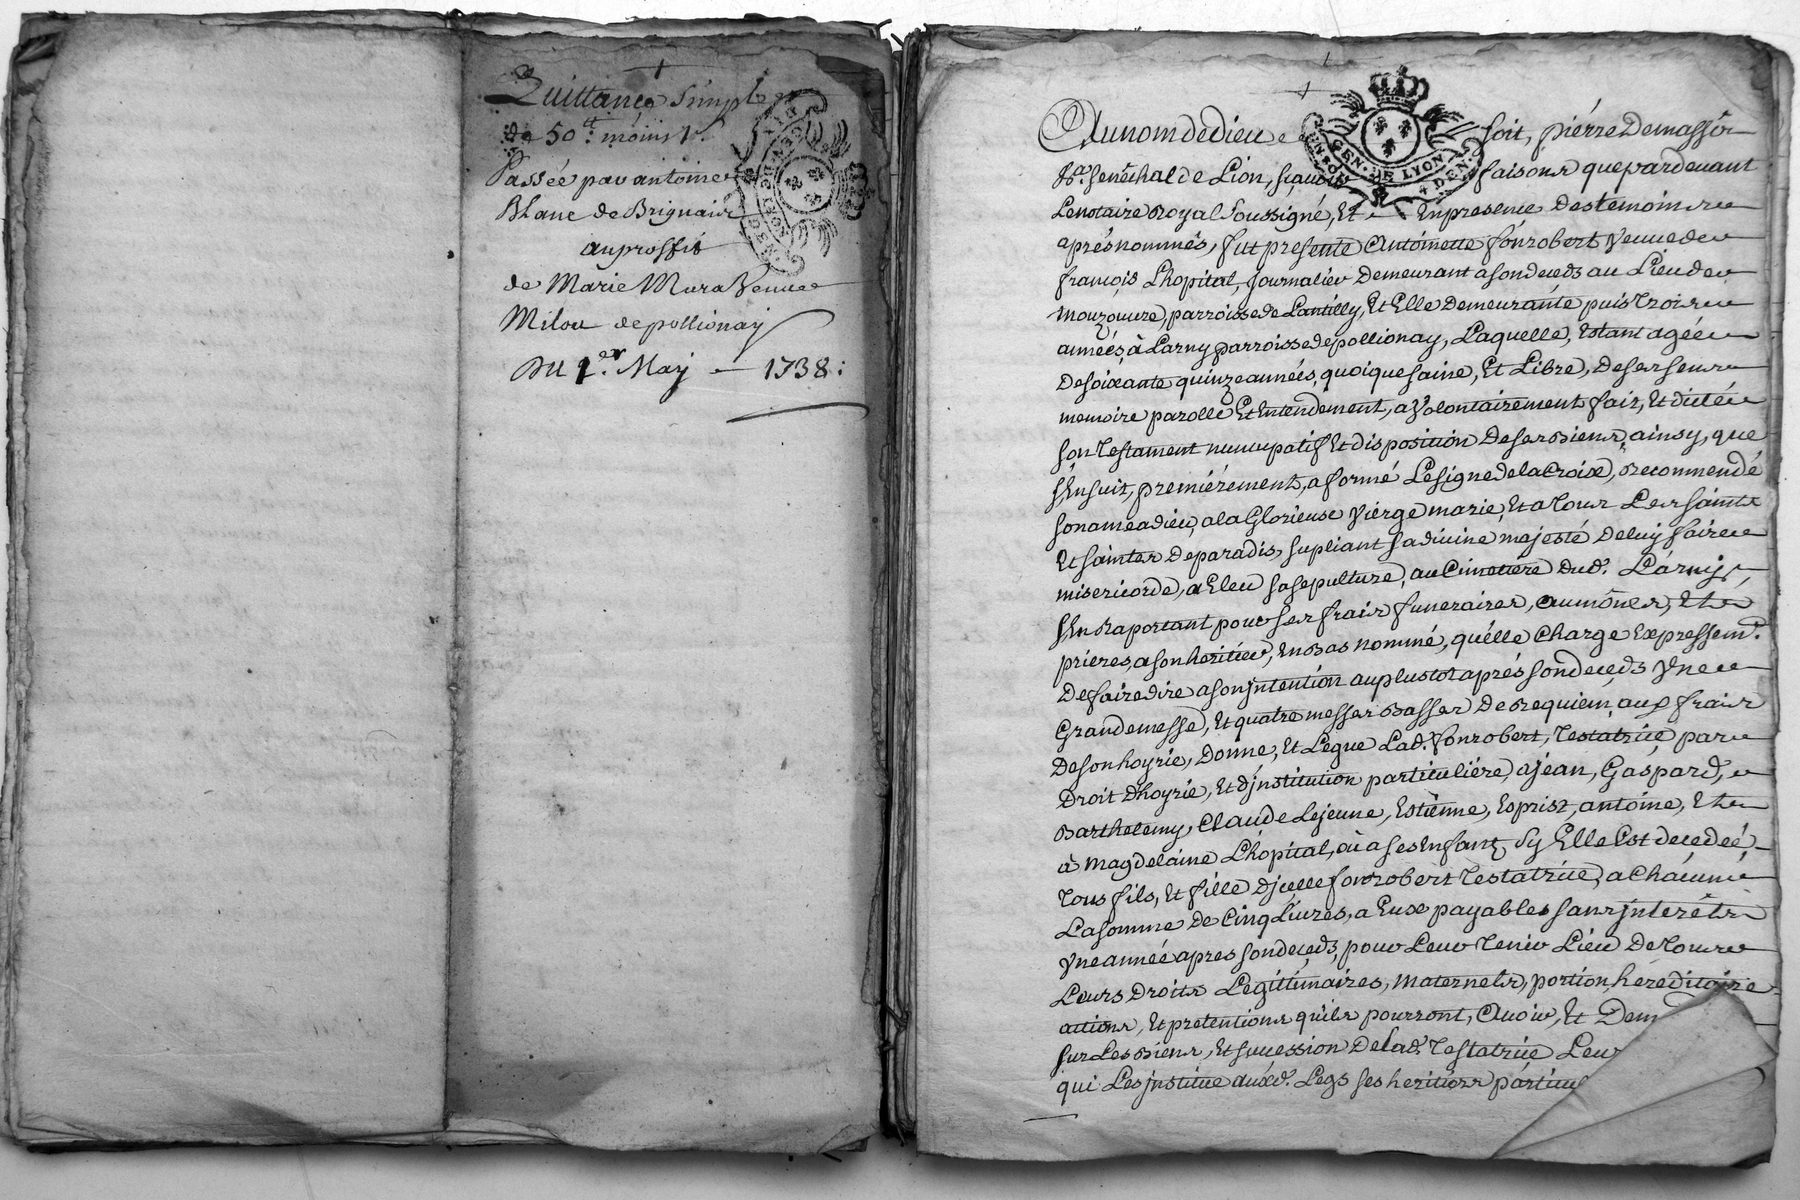 Quittance simple
de 50 tt. moins 1 s.
Passée par antoine
Blanc de Brignais
au proffit
de Marie Mura Veuve
Milou de pollionay
Du 1.er May — 1738:
GEN. DE LYON
Au nom de dieu soit, pierre Demassix
senéchal de Lion, sçavoir faisons que pardevant
Le notaire Royal soussigné, Et En presence des temoins
aprés nommés, fut presente Antoinette fonrobert veuve de
françois Lhopital, journalier demeurant a son decedz au Lieu de
mouzouure, parroisse de Lantilly, Et Elle demeurante puis trois
années, à Larny parroisse de pollionay, Laquelle, Estant agée
de soixante quinze années, quoique saine, Et Libre, de ses sens
memoire parolle Et Entendement, a volontairement fait, Et dicté
son testament nuncupatif Et disposition de ses biens, ainsy, que
s'Ensuit, premiérement, a formé Le signe de la Croix, Recommendé
son ame a dieu, a la Glorieuse vierge marie, Et a tous Les saints
Et saintes de paradis, supliant sa divine majesté de luy faire
misericorde, a Eleu sa sepulture, au Cimetiere dud. Lárny,
s'En Raportant pour ses frais funeraires, aumônes, Et
prieres, a son heritier, En bas nommé, qu'élle charge Expressemt.
de faire dire a son jntention au plustot aprés son decedz vne
Grande messe, Et quatre messes basses de Requiem, aux frais
de son hoyrie, Donne, Et Legue Lad. fonrobert, testatrice, par
droit dhoyrie, Et djnstitution particuliére, a jean, Gaspard,
Barthelemy, Claude Lejeune, Estienne, Esprist, antoine, Et
à magdelaine Lhópital, où a ses Enfants sy Elle Est decedeé,
tous fils, Et fille djcelle fonrobert testatrice, a Chácun
La somme de Cinq Livres, a Eux payables sans jnterêts
vne année apres son decedz, pour Leur tenir Lieu de tous
Leurs droits Legittimaires, maternels, portion hereditaire
actions, Et pretentions qu'ils pourront, Avoir, Et Dem
sur Les biens, Et succession de lad. testatrice
qui Les jnstitue auxd. Legs ses heritiers